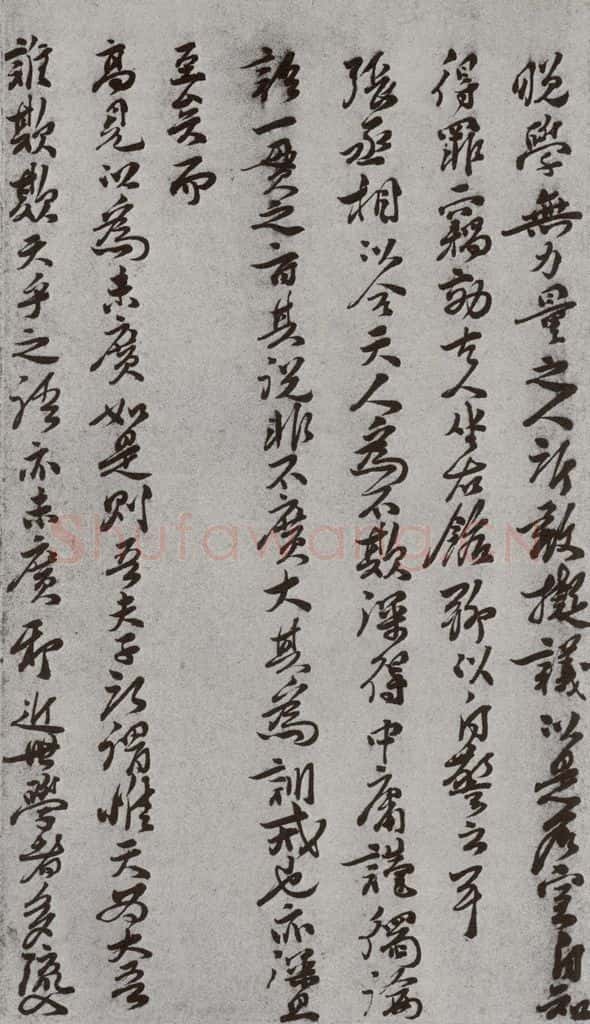 晚學無力量之人所敢擬議以是名室自知
得罪竊效古人坐右銘聊以自警云耳
張丞相以合天人為不欺深得中庸謹獨論
語一貫之旨其說非不廣大其為訓戒也亦深且
至矣而
高見以為未廣如是則吾夫子所謂惟天為大吾
誰欺欺天乎之語亦未廣耶近世學者多流入
Shufawang.CN